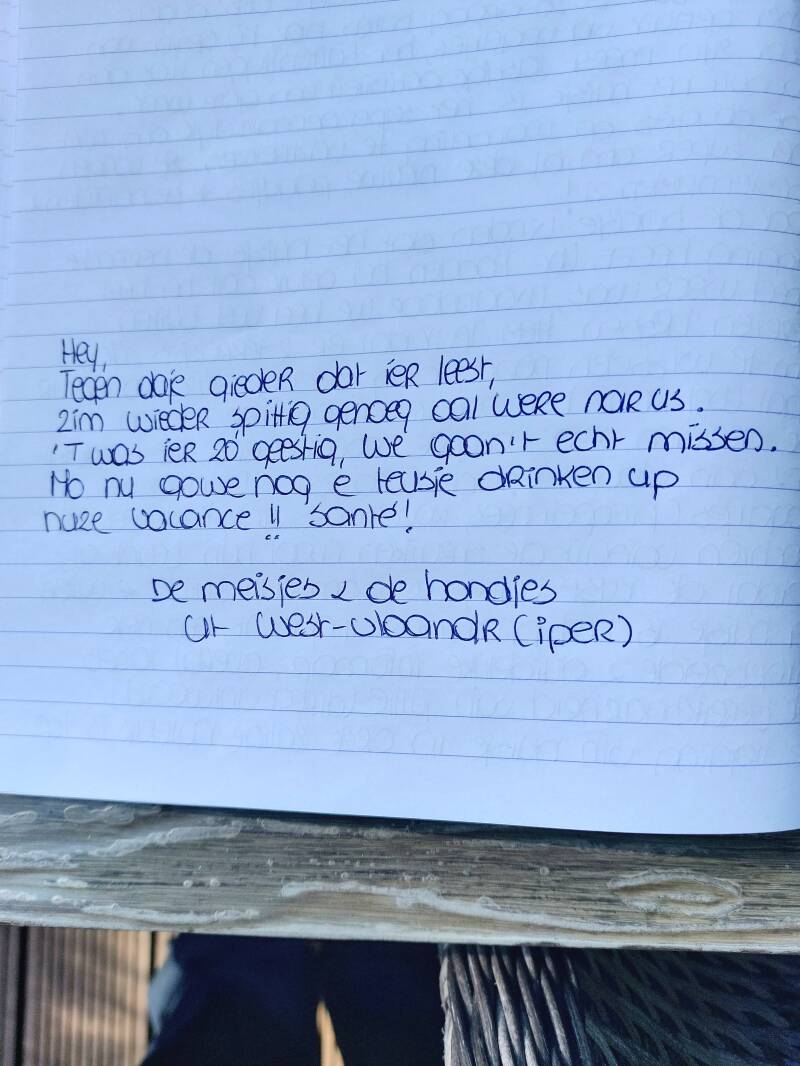 Hey,
Tegen daje gieder dat ier leest,
zim wieder spittig genoeg oal were nar us.
'T was ier zo geestig, we goan't echt missen.
Mo nu gowe nog e teusje drinken up
nuze vacance!! santé!
De meisjes & de hondjes
Ut West-vloandr (iper)